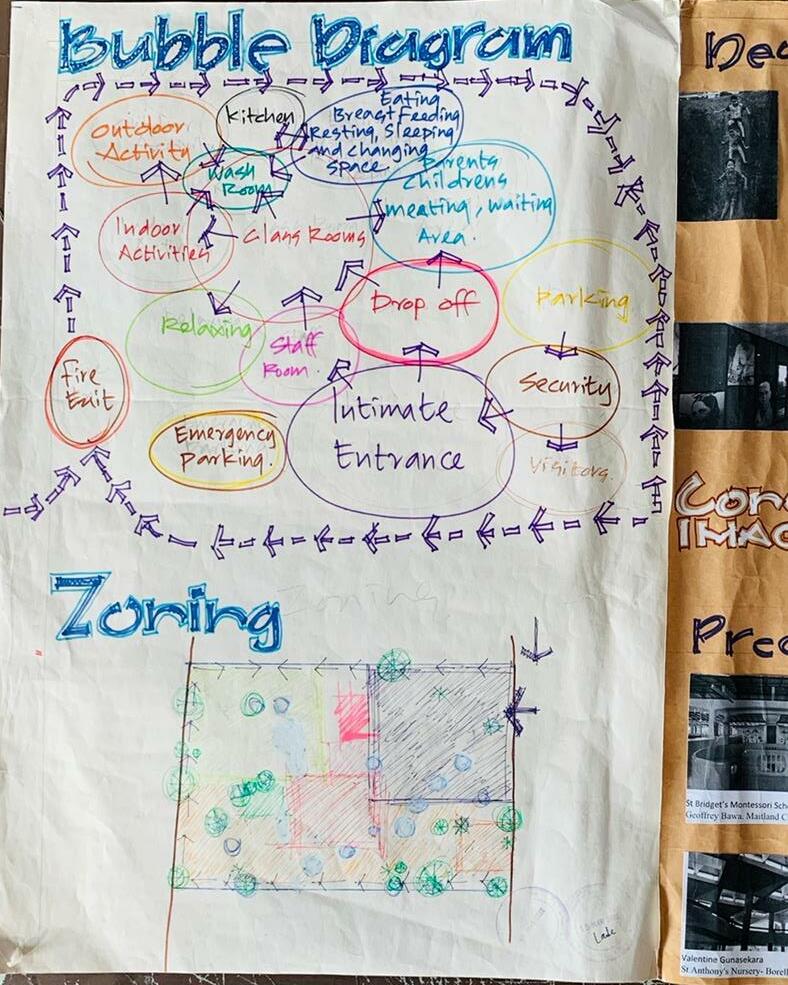 Bubble Diagram
Outdoor
Activity
Kitchen
Eating
Breast Feeding
Resting, Sleeping
and changing
space
Wash
Room
Parents
Childrens
meating, waiting
Area.
Indoor
Activities
Class Rooms
Drop off
Parking
Relaxing
Staff
Room.
Fire
Exit
Security
Intimate
Entrance
Emergency
parking.
Visitors.
Zoning
Zoning
Lade
Dec
Con
IMAG
Prec
St Bridget's Montessori Sch
Geoffrey Bawa. Maitland C
Valentine Gunasekara
St Anthony's Nursery- Borell